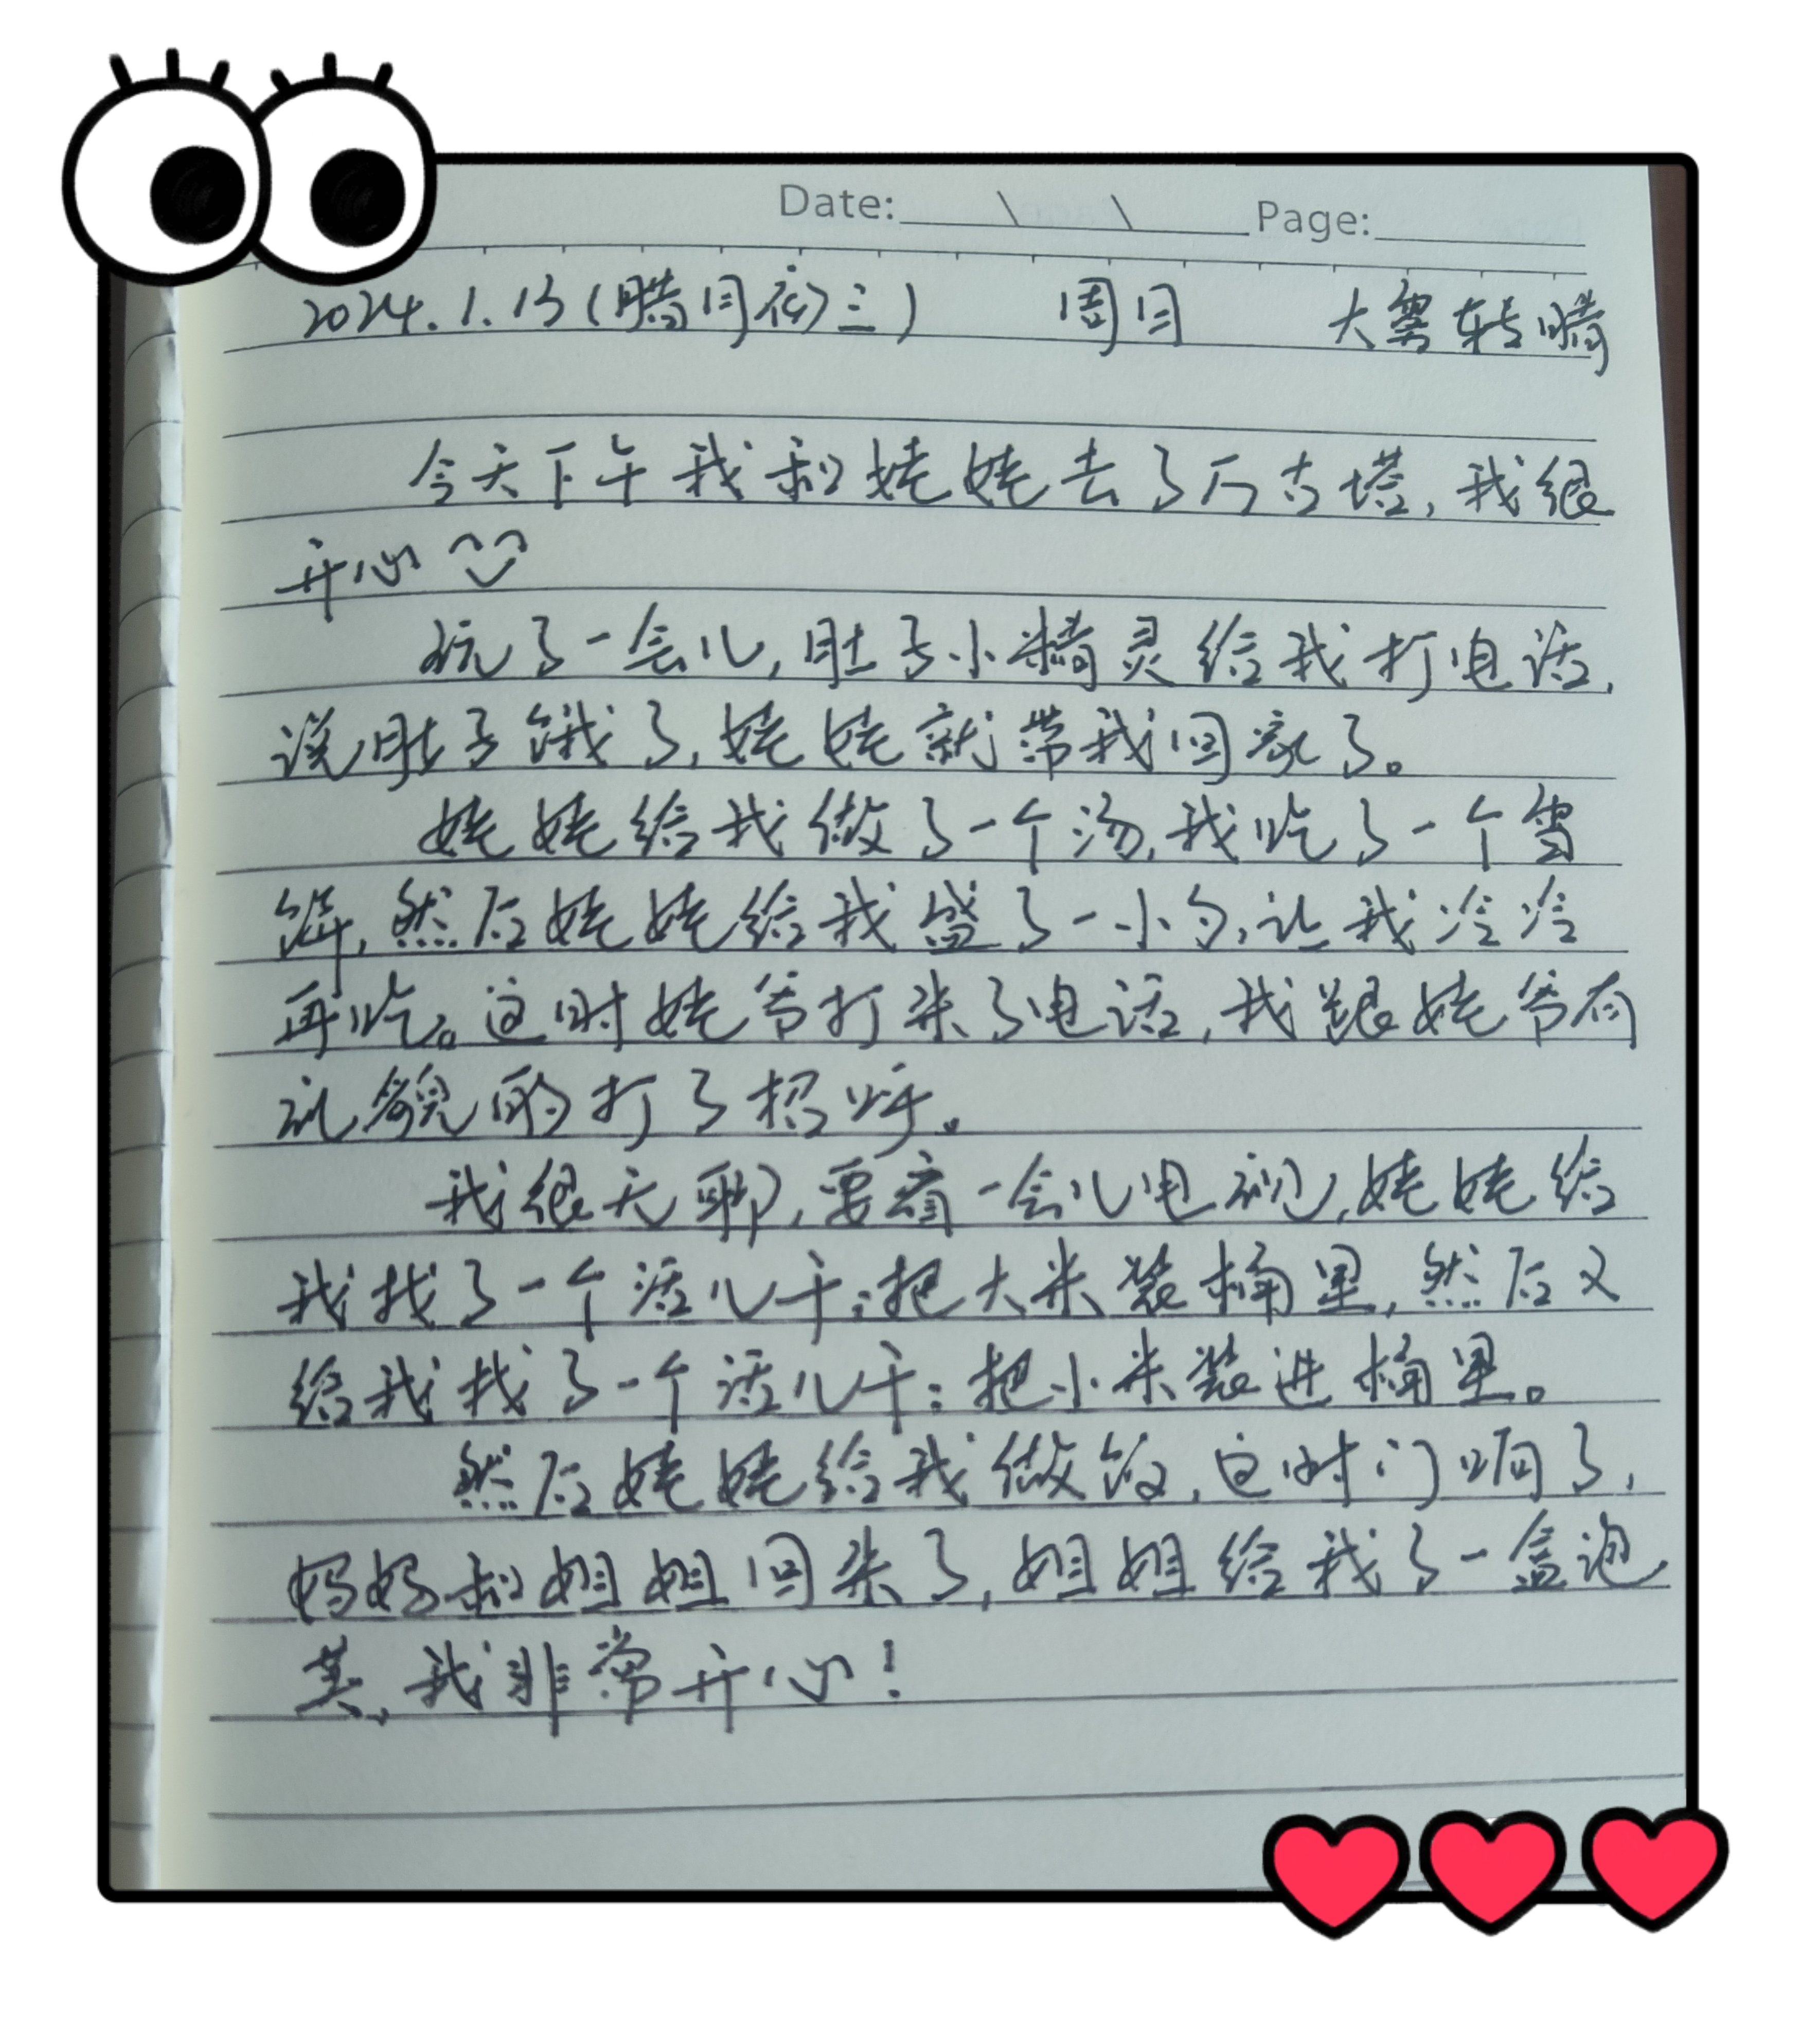 Date: \ \ Page:
2024.1.13(腊月初三) 周日 大雾转晴
今天下午我和姥姥去了万古塔,我很
开心
玩了一会儿,肚子小精灵给我打电话,
说肚子饿了,姥姥就带我回家了。
姥姥给我做了一个汤,我吃了一个雪
饼,然后姥姥给我盛了一小勺,让我冷冷
再吃。这时姥爷打来了电话,我跟姥爷有
礼貌的打了招呼。
我很无聊,要看一会儿电视,姥姥给
我找了一个活儿干:把大米装桶里,然后又
给我找了一个活儿干:把小米装进桶里。
然后姥姥给我做饭,这时门响了,
妈妈和姐姐回来了,姐姐给我了一盒泡
芙,我非常开心!